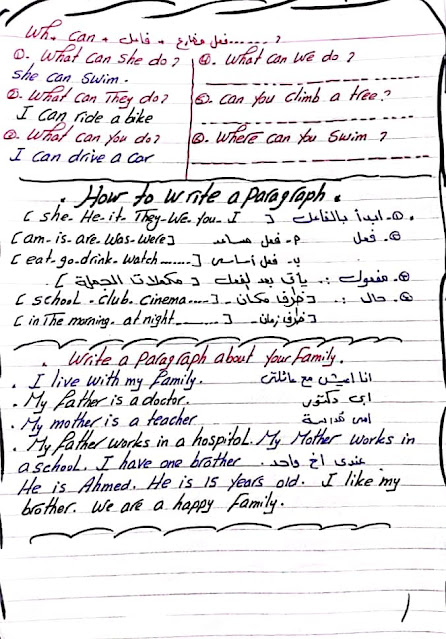 Wh. can + فاعل + فعل مضارع ........ ?
①. What can she do?
She can swim.
②. What can They do?
I can ride a bike
③. What can you do?
I can drive a car
④. What can we do ?
⑤. can you climb a tree?
⑥. Where can you swim ?
. How to write a paragraph .
[ she. He. it. They. We. you. I ] ①. ابدأ بالفاعل .
[am. is. are. was. were] م - فعل مساعد ②. فعل
[eat. go. drink. watch .......] ب - فعل أساسى
③. مفعول :. يأتى بعد الفعل [ مكملات الجملة ]
[ school . club . cinema.....] [ظرف مكان.... ] ④. حال :.
[ in The morning . at night ........] [ظرف زمان... ]
. Write a Paragraph about your Family.
. I live with my Family. انا اعيش مع عائلتى
. My Father is a doctor. ابى دكتور
. My mother is a teacher امى مدرسة
. My father works in a hospital. My Mother works in
a school. I have one brother . عندى اخ واحد
He is Ahmed. He is 15 years old. I like my
brother. We are a happy Family.